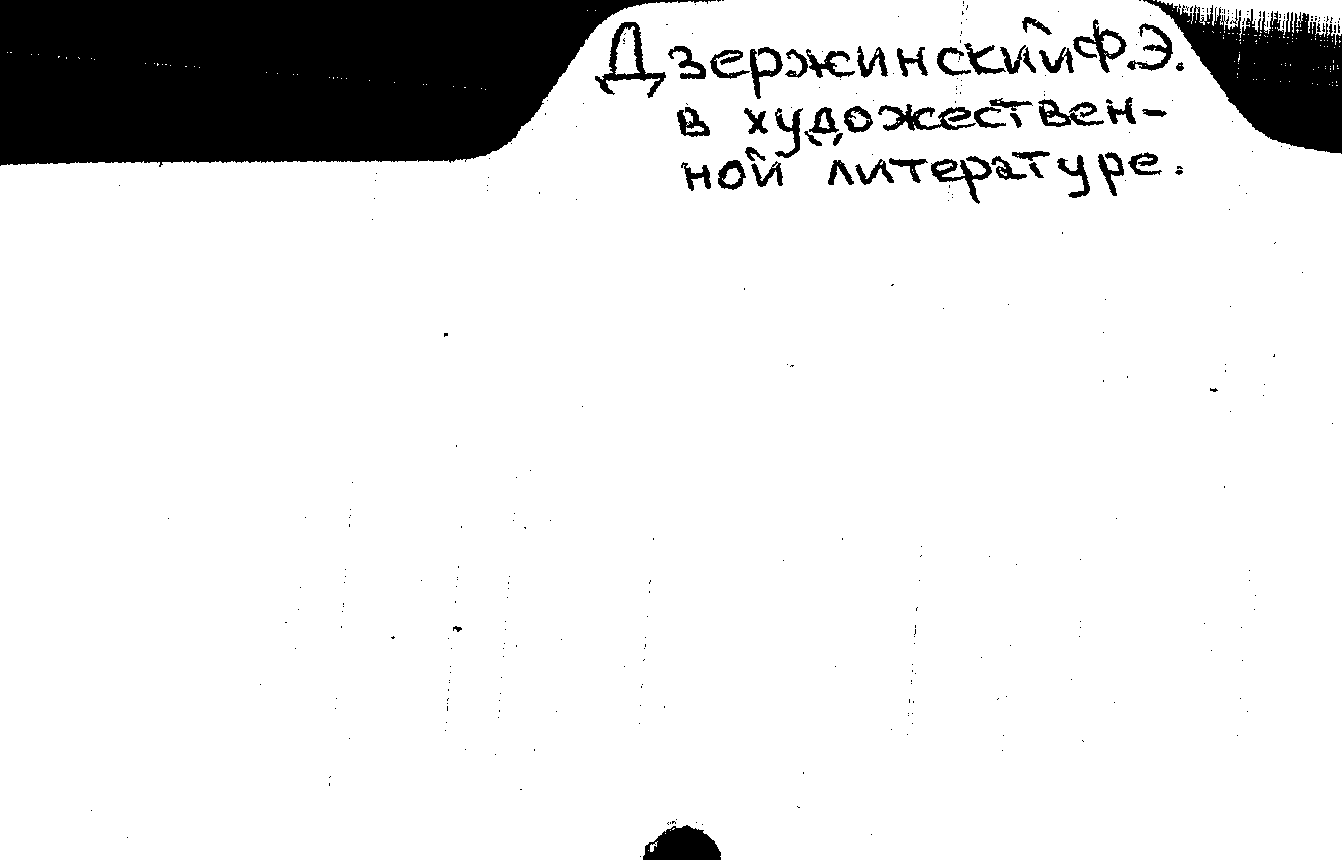 Дзержинский Ф.Э.
в художествен-
ной литературе.